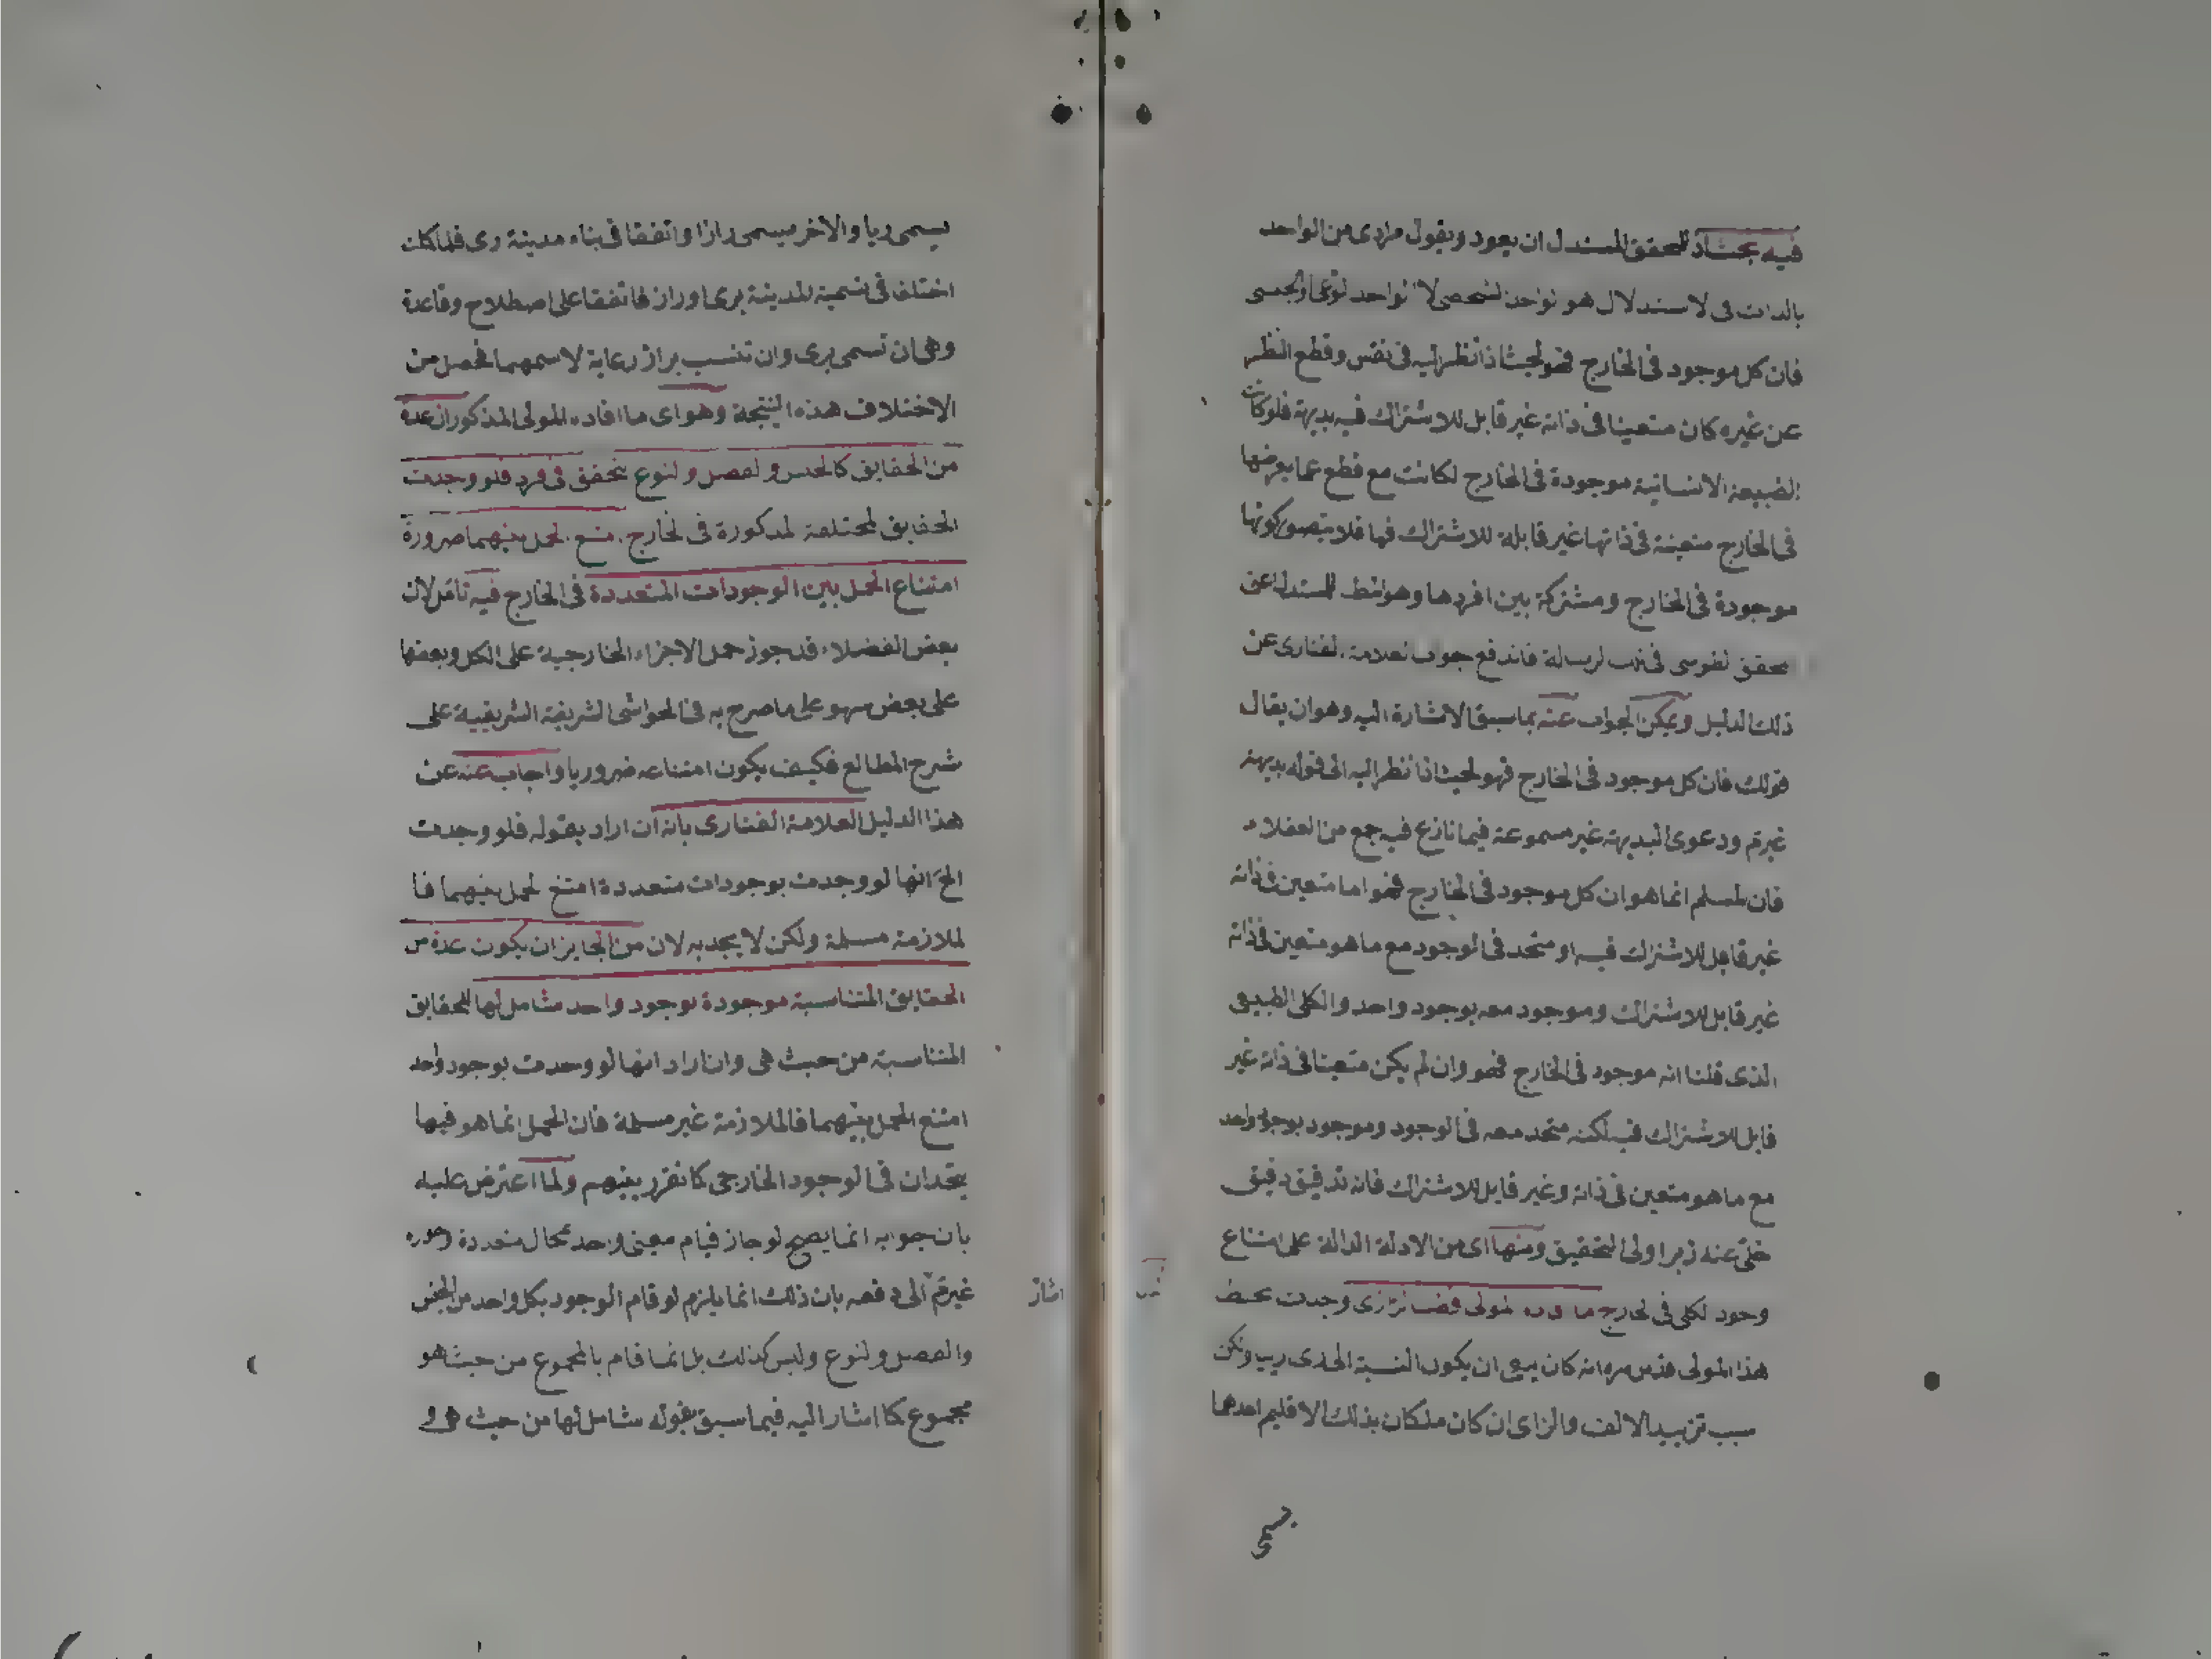 فيه بحث اذ للمحقق المستدل ان يعود ويقول مرادى من الواحد
بالذات فى الاستدلال هو الواحد الشخصى لا الواحد النوعى او الجنسى
فان كل موجود فى الخارج فهو بحيث اذا نظر اليه فى نفسه وقطع النظر
عن غيره كان متعينا فى ذاته غير قابل للاشتراك فيه بديهة فلو كانت
الطبيعة الانسانية موجودة فى الخارج لكانت مع قطع عما يعرضها
فى الخارج متعينة فى ذاتها غير قابلة للاشتراك فيها فلا يتصور كونها
موجودة فى الخارج ومشتركة بين افردها وهو المط للمستدل اعنى
محقق الطوسى فى الرسالة فاندفع جواب العلامة الفنارى عن
ذلك الدليل ويمكن الجواب عنه بما سبق الاشارة اليه وهو ان يقال
قولك فان كل موجود فى الخارج فهو بحيث اذا نظر اليه الى قوله بديهة
غيرم ودعوى البديهة غير مسموعة فيما نازع فيه جمع من العقلاء
فان المسلم انما هو ان كل موجود فى الخارج فهو اما متعين فى ذاته
غير قابل للاشتراك فيه او متحد فى الوجود مع ما هو متعين فى ذاته
غير قابل للاشتراك وموجود معه بوجود واحد والكلى الطبيعى
الذى قلنا انه موجود فى الخارج فهو وان لم يكن متعينا فى ذاته غير
قابل للاشتراك فيه لكنه متحد معه فى الوجود وموجود بوجود واحد
مع ما هو متعين فى ذاته وغير قابل للاشتراك فانه تدقيق دقيق
خلى عنه زبر اولى التحقيق ومنها اى من الادلة الدالة على امتناع
وجود الكلى فى الخارج ما المولى قطب الرازى وجدت بخط
هذا المولى قدس سره انه كان ينبغى ان يكون النسبة الى رى ولكن
سبب تزييد الالف والزاى ان كان ملكان بذلك الاقليم احدهما
يسمى
يسمى ريا والاخر يسمى رازا واتفقا فى بناء مدينة رى فلما كملت
اختلفا فى تسمية المدينة برى او راز فاتفقا على اصطلاح وقاعدة
وهى ان تسمى برى وان تنسب براز رعاية لاسمهما فحصل من
الاختلاف هذه النتيجة وهو اى ما افاده المولى المذكور ان عدة
من الحقايق كالجنس والفصل والنوع يتحقق فى فرد فلو وجدت
الحقايق المختلفة المذكورة فى الخارج امتنع الحمل بينهما ضرورة
امتناع الحمل بين الموجودات المتعددة فى الخارج فيه تامل لان
بعض الفضلاء قد جوز حمل الاجزاء الخارجية على الكل وبعضها
على بعض سهو على ما صرح به فى الحواشى الشريفة الشريفية على
شرح المطالع فكيف يكون امتناعه ضروريا واجاب عنه عن
هذا الدليل العلامة الفنارى بانه ان اراد بقوله فلو وجدت
الخ انها لو وجدت بوجودات متعددة امتنع الحمل بينهما فا
لملازمة مسلمة ولكن لا يجديه لان من الجايز ان يكون عدة من
الحقايق المتناسبة موجودة بوجود واحد شامل لها للحقايق
المتناسبة من حيث هى وان اراد انها لو وجدت بوجود واحد
امتنع الحمل بينهما فالملازمة غير مسلمة فان الحمل انما هو فيها
يتحدان فى الوجود الخارجى كما تقرر بينهم ولما اعترض عليه
بان جوابه انما يصح لو جاز قيام معنى واحد بمحال متعددة
غيرم الى دفعه بان ذلك انما يلزم لو قام الوجود بكل واحد من الجنس
والفصل والنوع وليس كذلك بل انما قام بالمجموع من حيث هو
مجموع كما اشار اليه فيما سبق بقوله شامل لها من حيث هى و